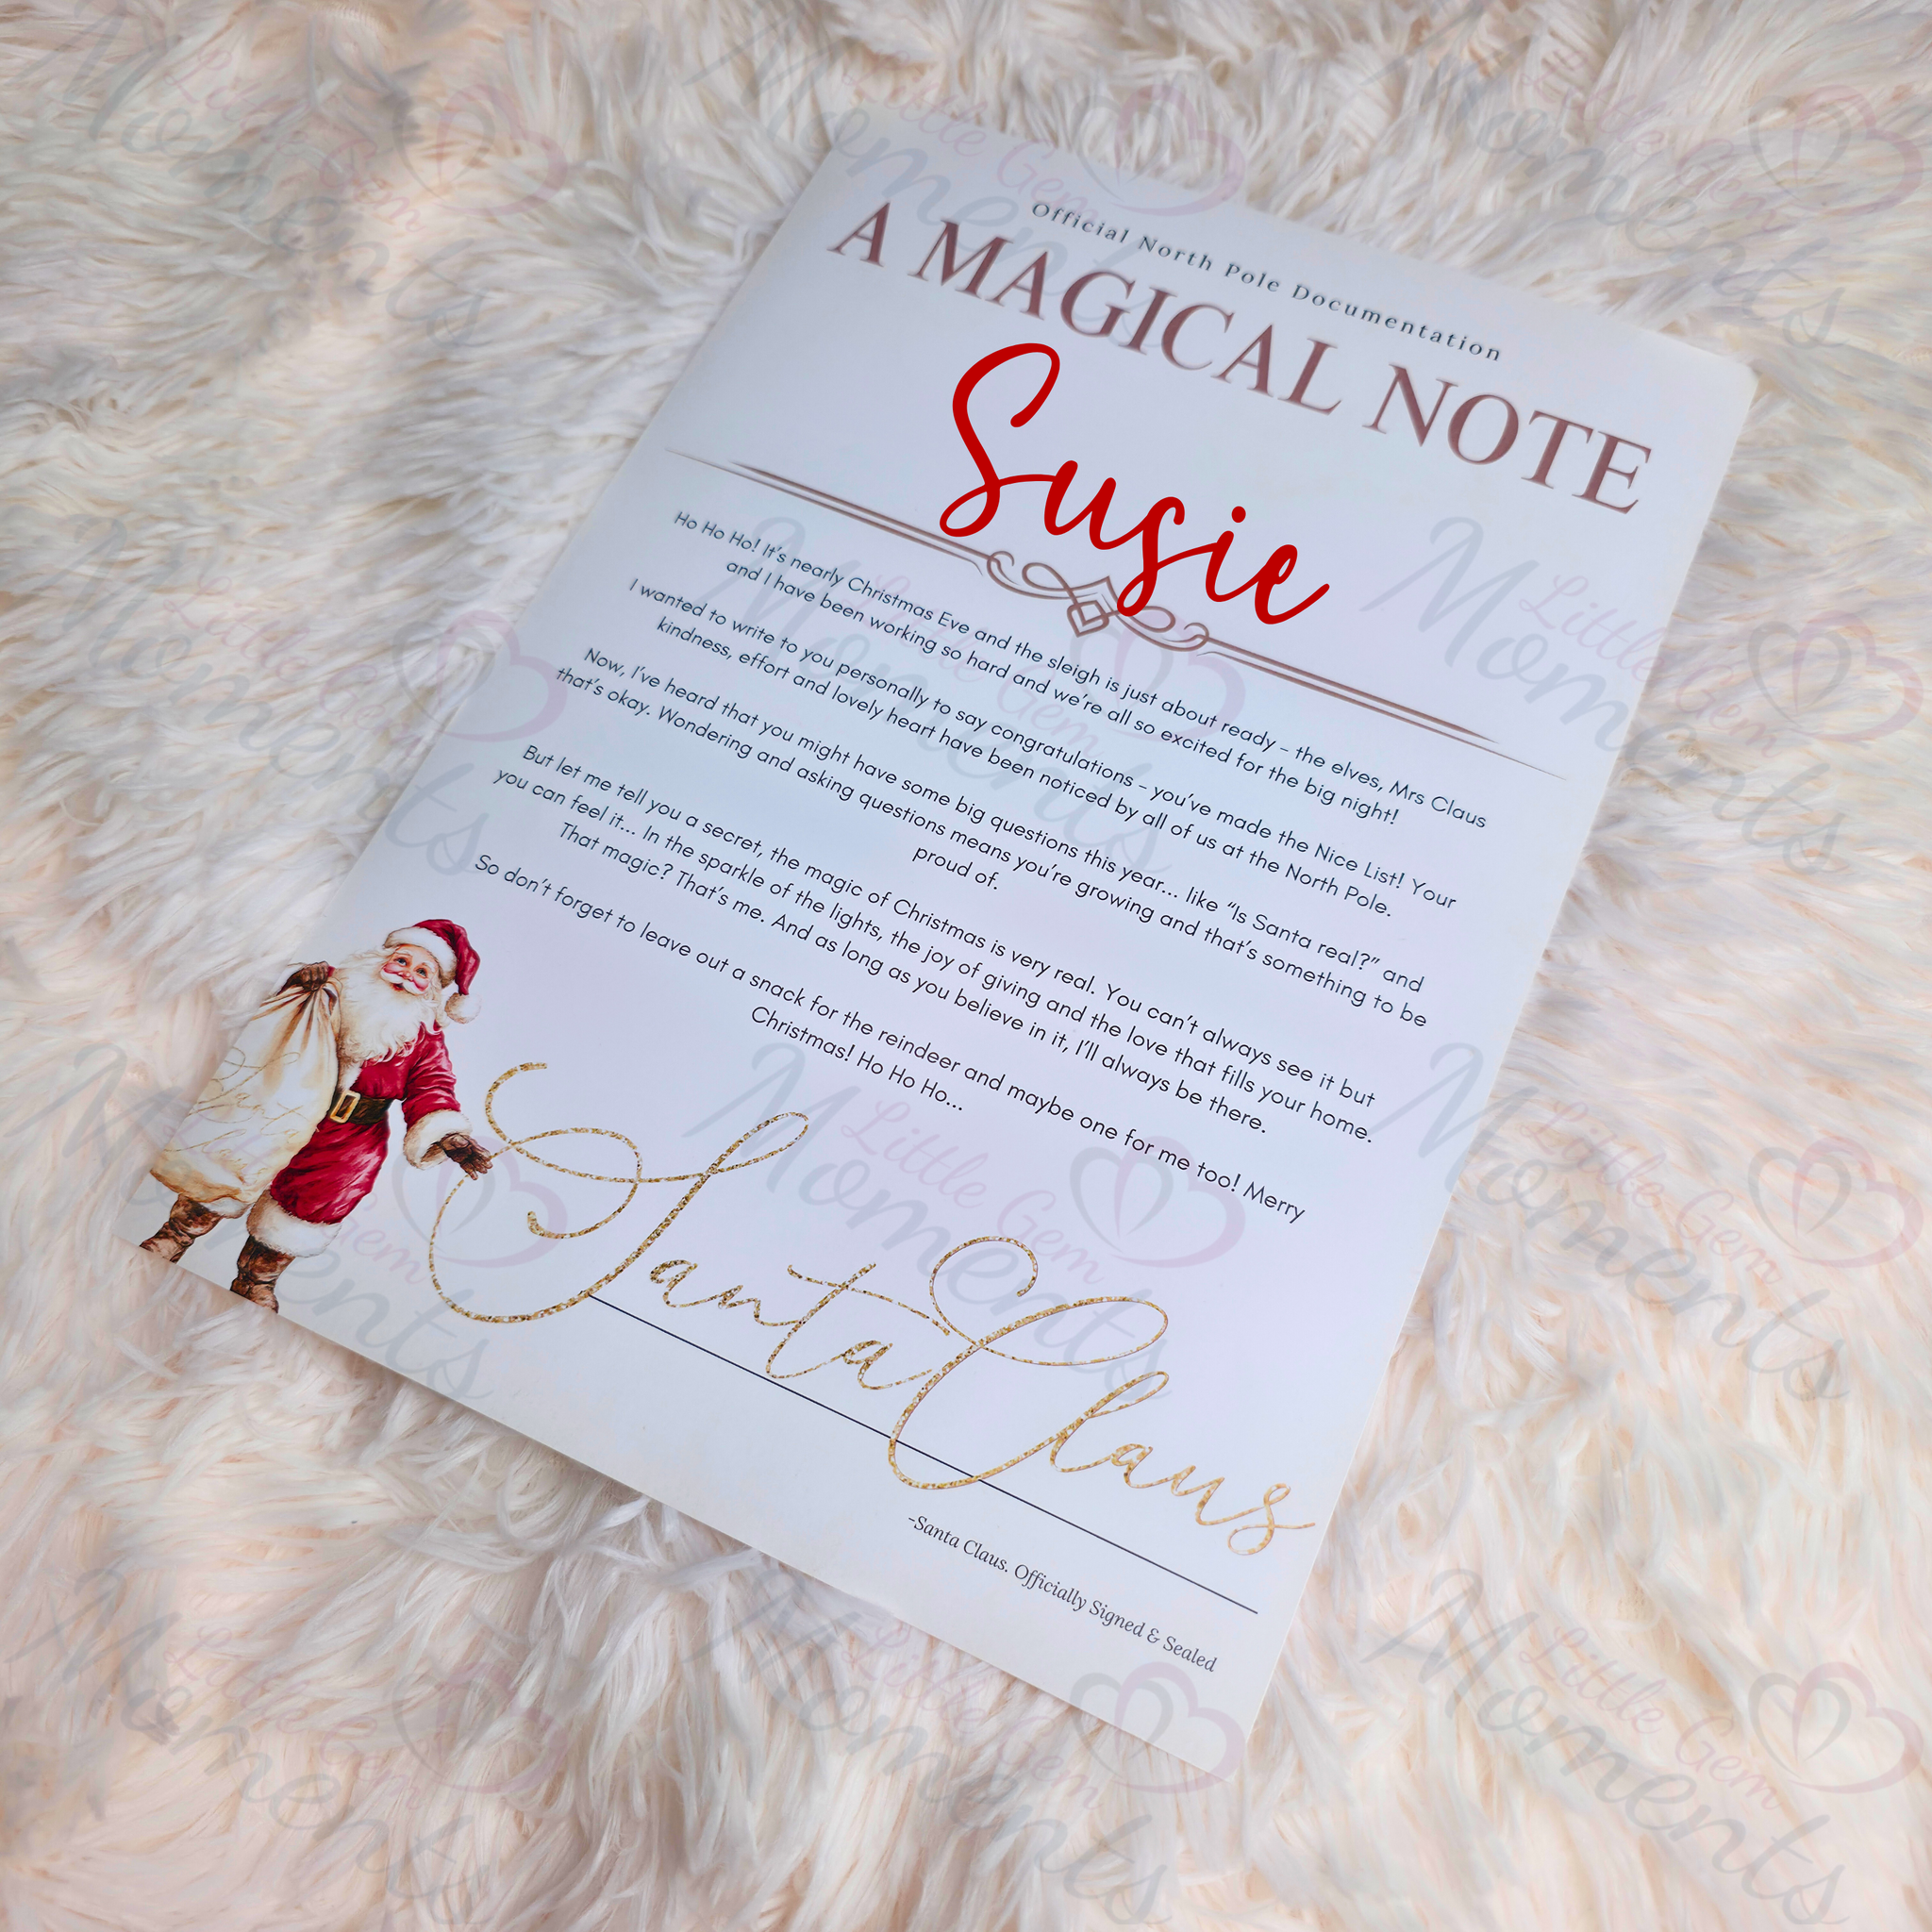 Official North Pole Documentation
A MAGICAL NOTE
Susie
Ho Ho Ho! It's nearly Christmas Eve and the sleigh is just about ready – the elves, Mrs Claus
and I have been working so hard and we're all so excited for the big night!
I wanted to write to you personally to say congratulations – you've made the Nice List! Your
kindness, effort and lovely heart have been noticed by all of us at the North Pole.
Now, I've heard that you might have some big questions this year... like "Is Santa real?" and
that's okay. Wondering and asking questions means you're growing and that's something to be
proud of.
But let me tell you a secret, the magic of Christmas is very real. You can't always see it but
you can feel it... In the sparkle of the lights, the joy of giving and the love that fills your home.
That magic? That's me. And as long as you believe in it, I'll always be there.
So don't forget to leave out a snack for the reindeer and maybe one for me too! Merry
Christmas! Ho Ho Ho...
Santa Claus
Santa Claus
-Santa Claus. Officially Signed & Sealed
Little Gem
Moments